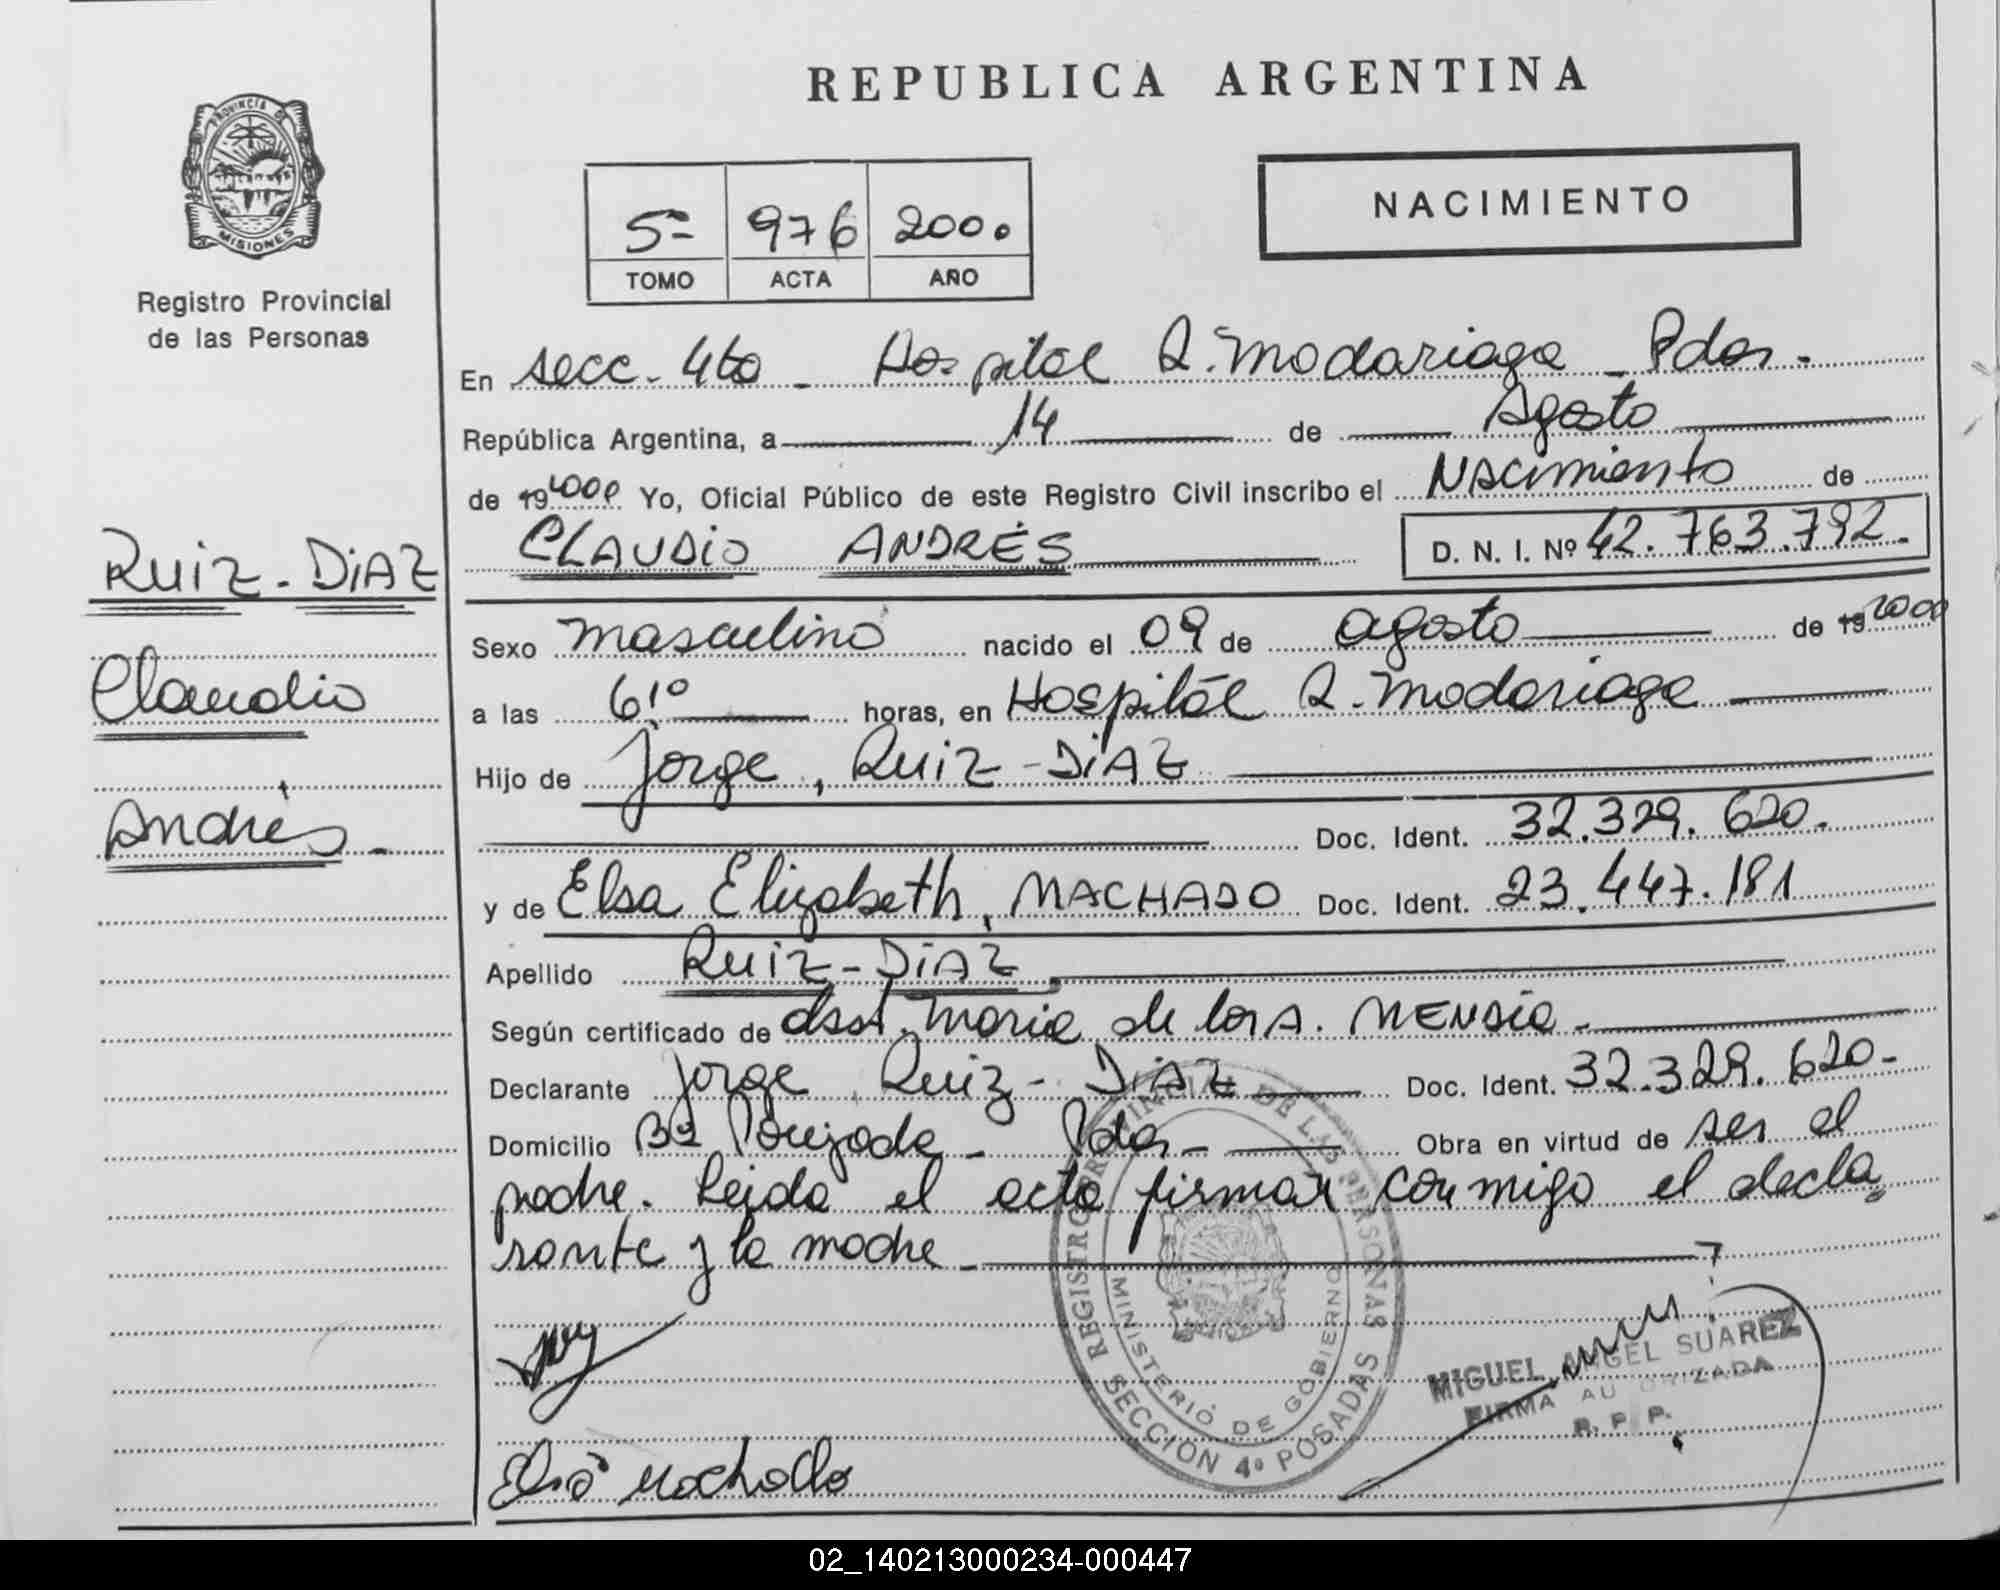 REPUBLICA ARGENTINA
PROVINCIA DE
MISIONES
Registro Provincial
de las Personas
NACIMIENTO
5º 976 2000
TOMO ACTA AÑO
En secc. 4ta - Hospital R. Madariaga - Pdas.
República Argentina, a 14 de Agosto
de 19 2000 Yo, Oficial Público de este Registro Civil inscribo el Nacimiento de
CLAUDIO ANDRÉS D. N. I. Nº 42.763.792.
RUIZ-DIAZ
Claudio
Andrés.-
Sexo masculino nacido el 09 de agosto de 19 2000
a las 6,10 horas, en Hospital R. Madariaga
Hijo de Jorge, RUIZ-DIAZ
Doc. Ident. 32.329.620.
y de Elsa Elizabeth, MACHADO Doc. Ident. 23.447.181
Apellido RUIZ-DIAZ.
Según certificado de María de los A. MENDIA-
Declarante Jorge Ruiz-DIAZ Doc. Ident. 32.329.620-
Domicilio Bº Poujade - Pdas - Obra en virtud de ser el
padre. Leida el acta firman conmigo el decla
rante y la madre -
REGISTRO PROVINCIAL DE LAS PERSONAS
MINISTERIO DE GOBIERNO
SECCION 4º POSADAS
MIGUEL ANGEL SUAREZ
FIRMA AUTORIZADA
R. P. P.
Elsa Machado
02_140213000234-000447